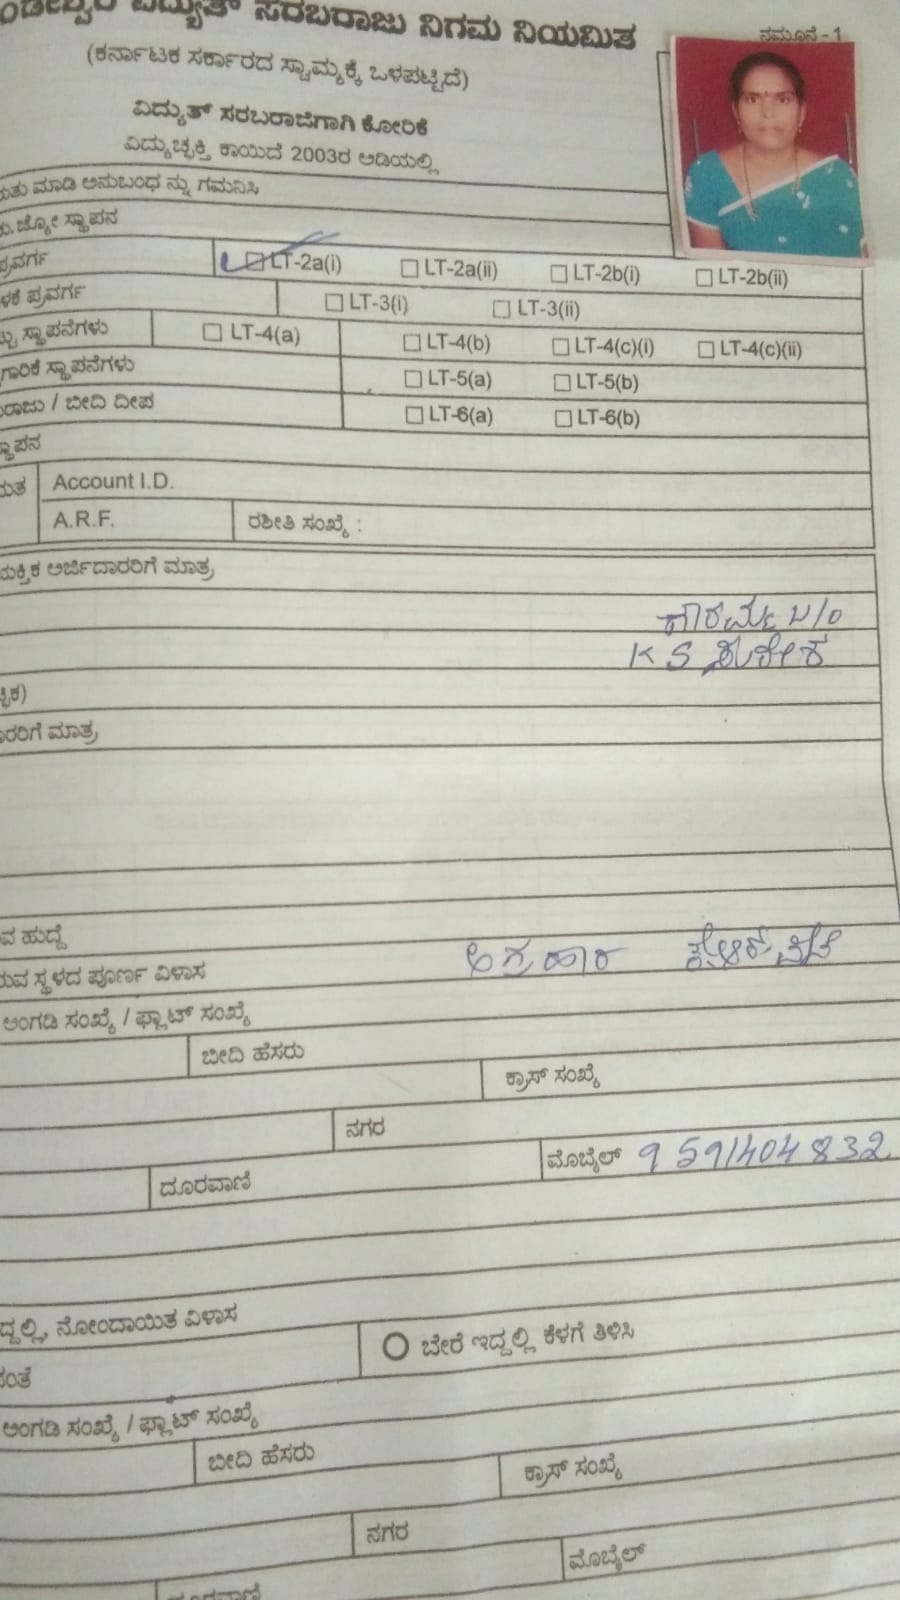 ವಿದ್ಯುತ್ ಸರಬರಾಜು ನಿಗಮ ನಿಯಮಿತ
ನಮೂನೆ - 1
(ಕರ್ನಾಟಕ ಸರ್ಕಾರದ ಸ್ವಾಮ್ಯಕ್ಕೆ ಒಳಪಟ್ಟಿದೆ)
ವಿದ್ಯುತ್ ಸರಬರಾಜಿಗಾಗಿ ಕೋರಿಕೆ
ವಿದ್ಯುಚ್ಛಕ್ತಿ ಕಾಯಿದೆ 2003ರ ಅಡಿಯಲ್ಲಿ
ಮಾಡಿ ಅನುಬಂಧ ನ್ನು ಗಮನಿಸಿ
ಸ್ಥಾಪನ
ಪ್ರವರ್ಗ LT-2a(i) LT-2a(ii) LT-2b(i) LT-2b(ii)
ಪ್ರವರ್ಗ LT-3(i) LT-3(ii)
ಸ್ಥಾಪನೆಗಳು LT-4(a) LT-4(b) LT-4(c)(i) LT-4(c)(ii)
ಸ್ಥಾಪನೆಗಳು LT-5(a) LT-5(b)
/ ಬೀದಿ ದೀಪ LT-6(a) LT-6(b)
Account I.D.
A.R.F. ರಶೀತಿ ಸಂಖ್ಯೆ :
ಅರ್ಜಿದಾರರಿಗೆ ಮಾತ್ರ
K S
ಮಾತ್ರ
ಹುದ್ದೆ
ಅಗ್ರಹಾರ
ಸ್ಥಳದ ಪೂರ್ಣ ವಿಳಾಸ
ಅಂಗಡಿ ಸಂಖ್ಯೆ / ಫ್ಲಾಟ್ ಸಂಖ್ಯೆ
ಬೀದಿ ಹೆಸರು
ಕ್ರಾಸ್ ಸಂಖ್ಯೆ
ನಗರ
ಮೊಬೈಲ್ 9591404832
ದೂರವಾಣಿ
ನೋಂದಾಯಿತ ವಿಳಾಸ
ಬೇರೆ ಇದ್ದಲ್ಲಿ ಕೆಳಗೆ ತಿಳಿಸಿ
ಅಂಗಡಿ ಸಂಖ್ಯೆ / ಫ್ಲಾಟ್ ಸಂಖ್ಯೆ
ಬೀದಿ ಹೆಸರು
ಕ್ರಾಸ್ ಸಂಖ್ಯೆ
ನಗರ
ಮೊಬೈಲ್
ದೂರವಾಣಿ